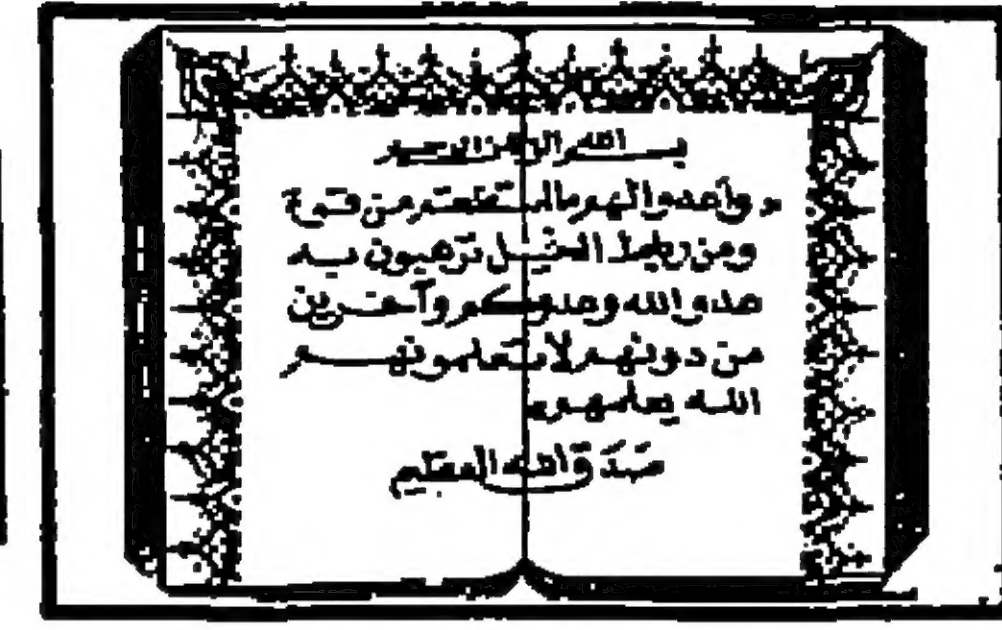 بسم الله الرحمن الرحيم
« وأعدوا لهم ما استطعتم من قوة
ومن رباط الخيل ترهبون به
عدو الله وعدوكم وآخرين
من دونهم لا تعلمونهم
الله يعلمهم »
صدق الله العظيم